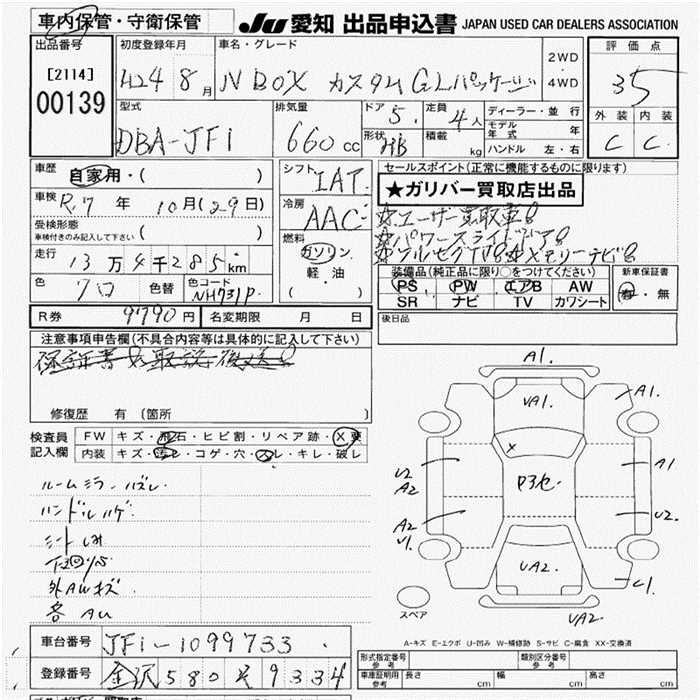 車内保管・守衛保管
JU 愛知 出品申込書 JAPAN USED CAR DEALERS ASSOCIATION
出品番号
[2114]
00139
初度登録年月
H24 8月
車名・グレード
N BOX カスタム GLパッケージ
2WD
4WD
評価点
3.5
外装 内装
C C
型式
DBA-JF1
排気量
660 cc
ドア 5
形状 HB
定員 4人
積載 kg
ディーラー・並行
モデル年式 年
ハンドル 左・右
車歴
自家用・( )
車検
R.7年 10月(29日)
受検形態
車検付きのみ記入して下さい ( )
走行
13万4千285km
色 クロ 色替
カラーコード NH731P
R券 9790円 名変期限 月 日
シフト
IAT
冷房
AAC
燃料
ガソリン
軽・油
( )
セールスポイント(正常に機能するものに限ります)
★ガリバー買取店出品
☆ユーザー買取車!
☆パワースライドドア!
☆フルセグTV!☆メモリーナビ!
装備品(純正品に限り○をつけてください)
PS PW エアB AW
SR ナビ TV カワシート
新車保証書
有・無
後日品
注意事項申告欄(不具合内容等は具体的に記入して下さい)
保証書&取説後送!
修復歴 有 (箇所 )
検査員記入欄
FW キズ・飛石・ヒビ割・リペア跡・X要
内装 キズ・汚レ・コゲ・穴・スレ・キレ・破レ
ルームミラーハズレ
ハンドルハゲ
シートしみ
外AWキズ
各AU
A1.
VA1.
A1.
X
U2
A2
P3セ
A1
A2
U1.
U2.
UA2
U1.
UA2.
スペア
A-キズ E-エクボ U-凹み W-補修跡 S-サビ C-腐食 XX-交換済
車台番号 JF1-1099733
登録番号 金沢580 そ9334
形式指定番号 参考
類別区分番号 参考
車庫証明用参考 長さ cm 幅 cm 高さ cm